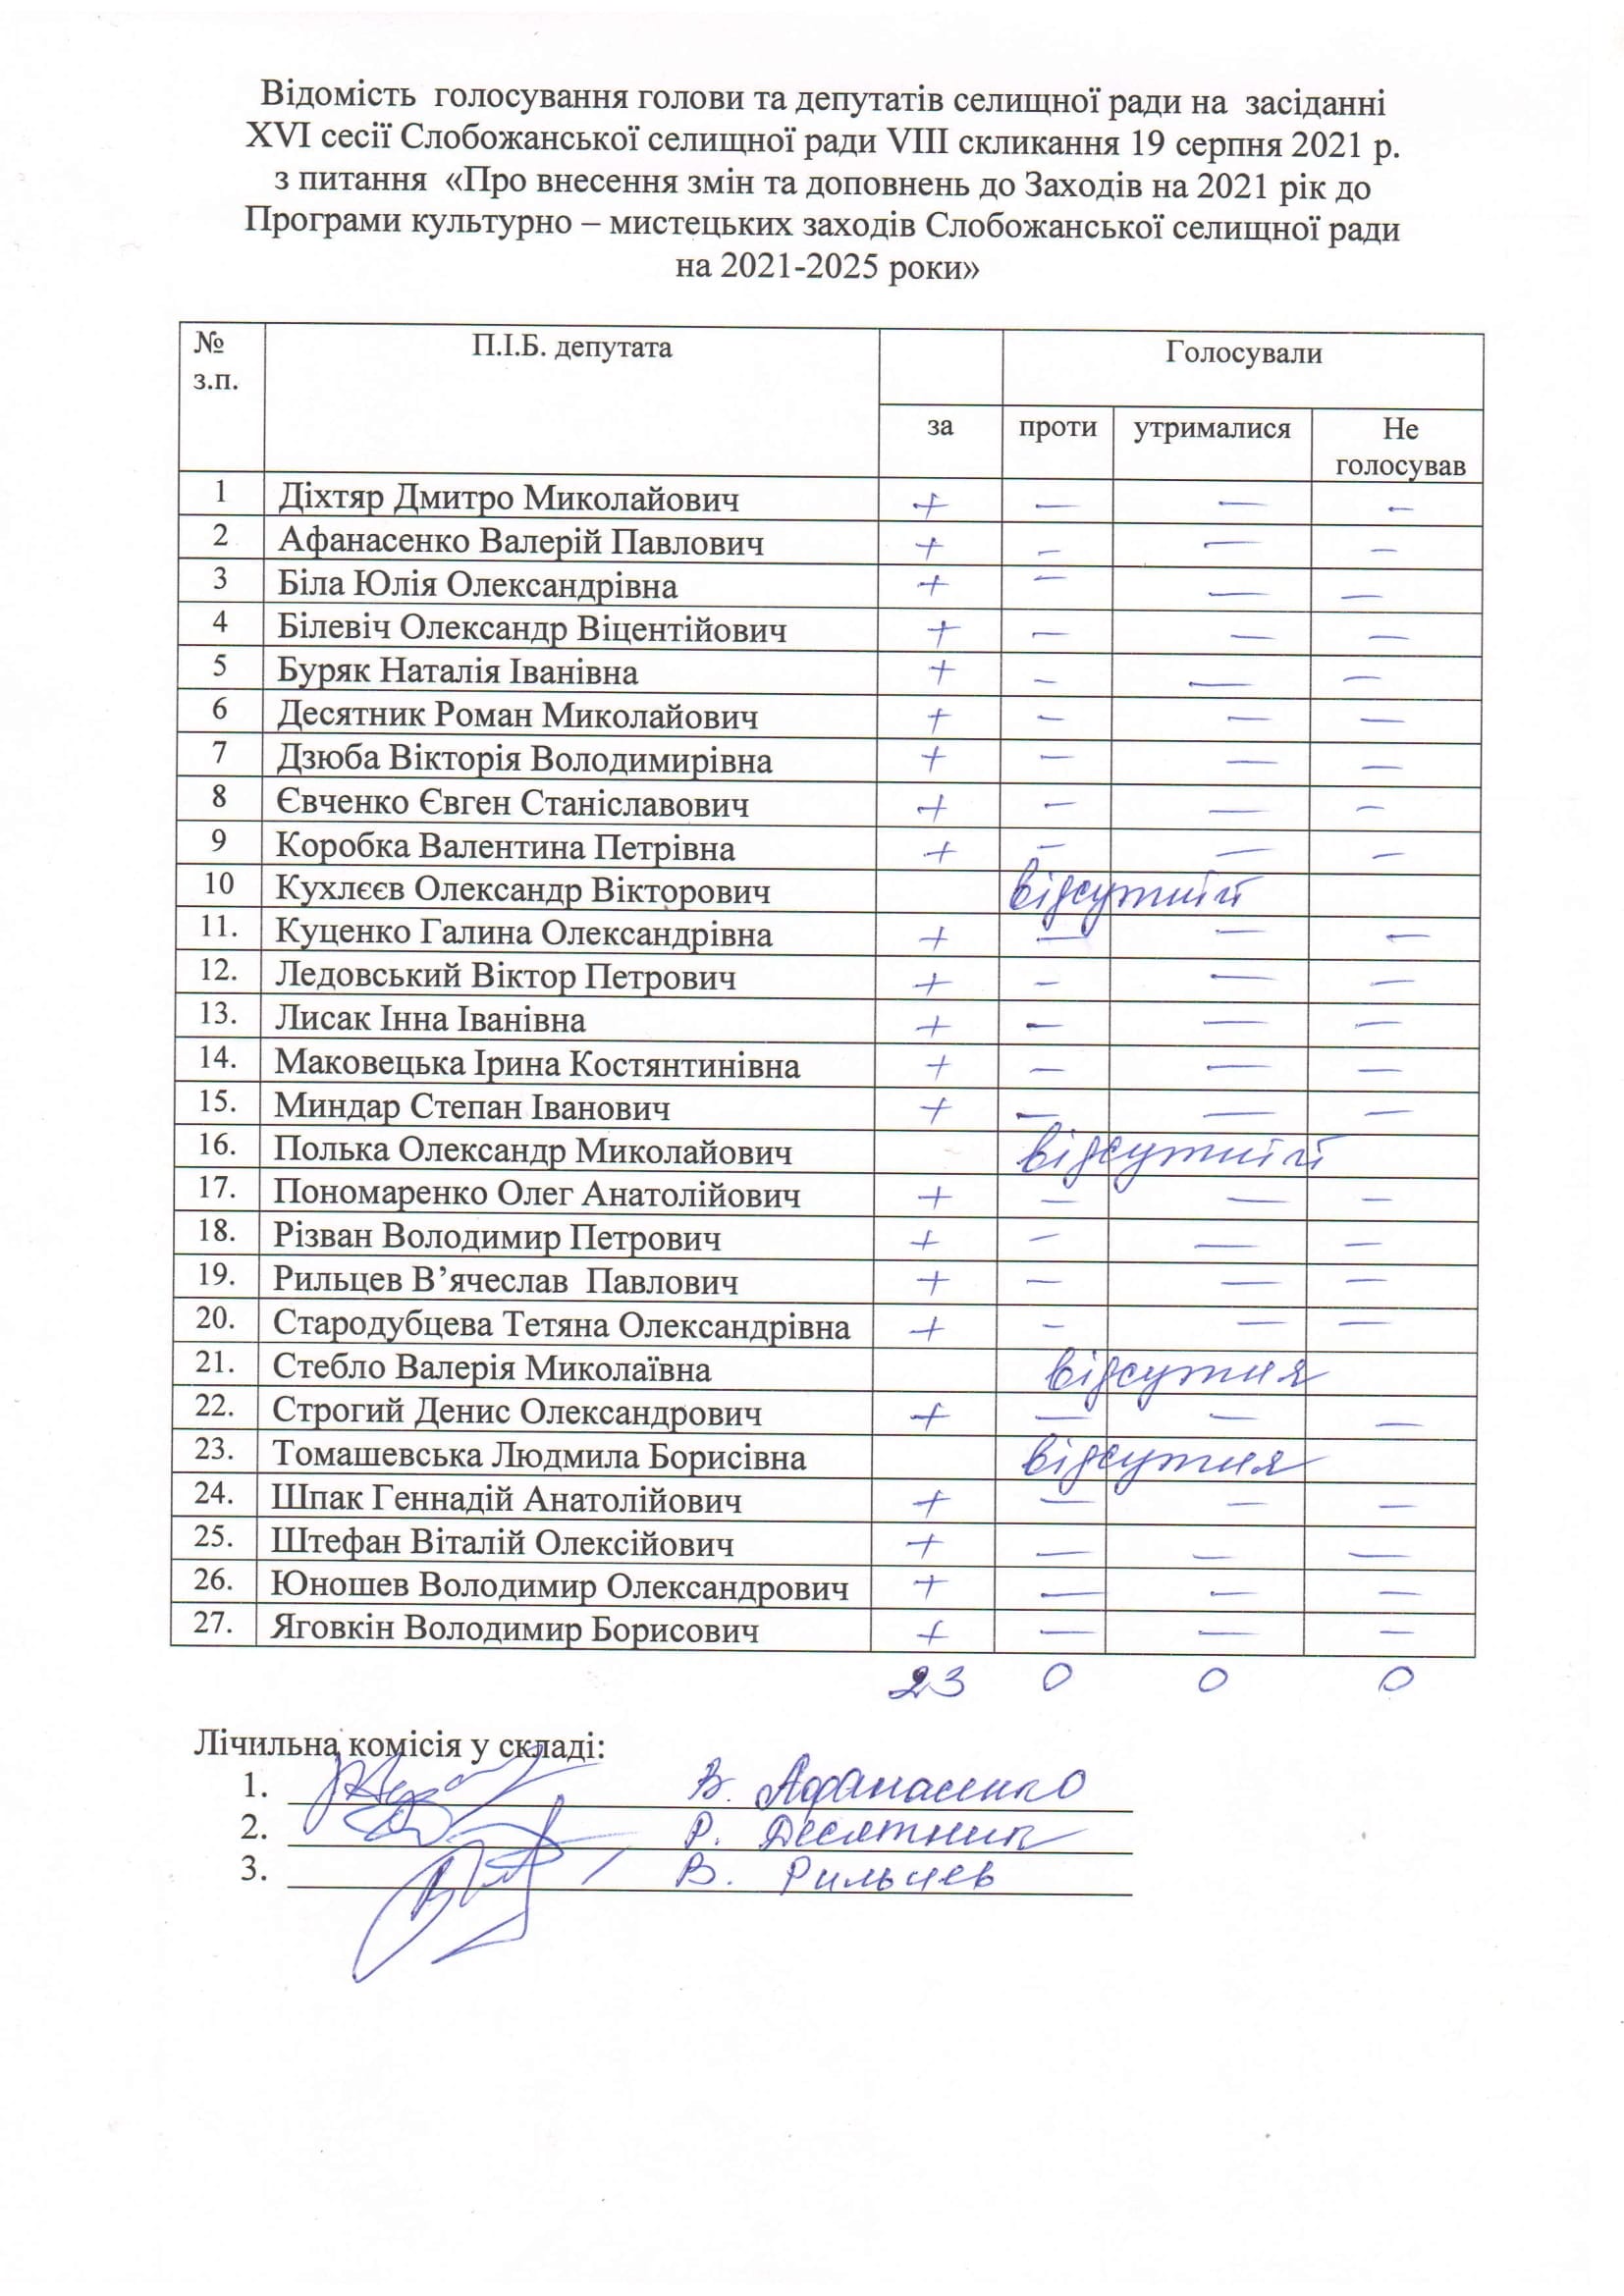 Відомість голосування голови та депутатів селищної ради на засіданні
XVI сесії Слобожанської селищної ради VIII скликання 19 серпня 2021 р.
з питання «Про внесення змін та доповнень до Заходів на 2021 рік до
Програми культурно – мистецьких заходів Слобожанської селищної ради
на 2021-2025 роки»
№ з.п. П.І.Б. депутата Голосували
за проти утрималися Не голосував
1 Діхтяр Дмитро Миколайович + — — —
2 Афанасенко Валерій Павлович + — — —
3 Біла Юлія Олександрівна + — — —
4 Білевіч Олександр Віцентійович + — — —
5 Буряк Наталія Іванівна + — — —
6 Десятник Роман Миколайович + — — —
7 Дзюба Вікторія Володимирівна + — — —
8 Євченко Євген Станіславович + — — —
9 Коробка Валентина Петрівна + — — —
10 Кухлєєв Олександр Вікторович відсутній
11. Куценко Галина Олександрівна + — — —
12. Ледовський Віктор Петрович + — — —
13. Лисак Інна Іванівна + — — —
14. Маковецька Ірина Костянтинівна + — — —
15. Миндар Степан Іванович + — — —
16. Полька Олександр Миколайович відсутній
17. Пономаренко Олег Анатолійович + — — —
18. Різван Володимир Петрович + — — —
19. Рильцев В’ячеслав Павлович + — — —
20. Стародубцева Тетяна Олександрівна + — — —
21. Стебло Валерія Миколаївна відсутня
22. Строгий Денис Олександрович + — — —
23. Томашевська Людмила Борисівна відсутня
24. Шпак Геннадій Анатолійович + — — —
25. Штефан Віталій Олексійович + — — —
26. Юношев Володимир Олександрович + — — —
27. Яговкін Володимир Борисович + — — —
23 0 0 0
Лічильна комісія у складі:
1. В. Афанасенко
2. Р. Десятник
3. В. Рильцев